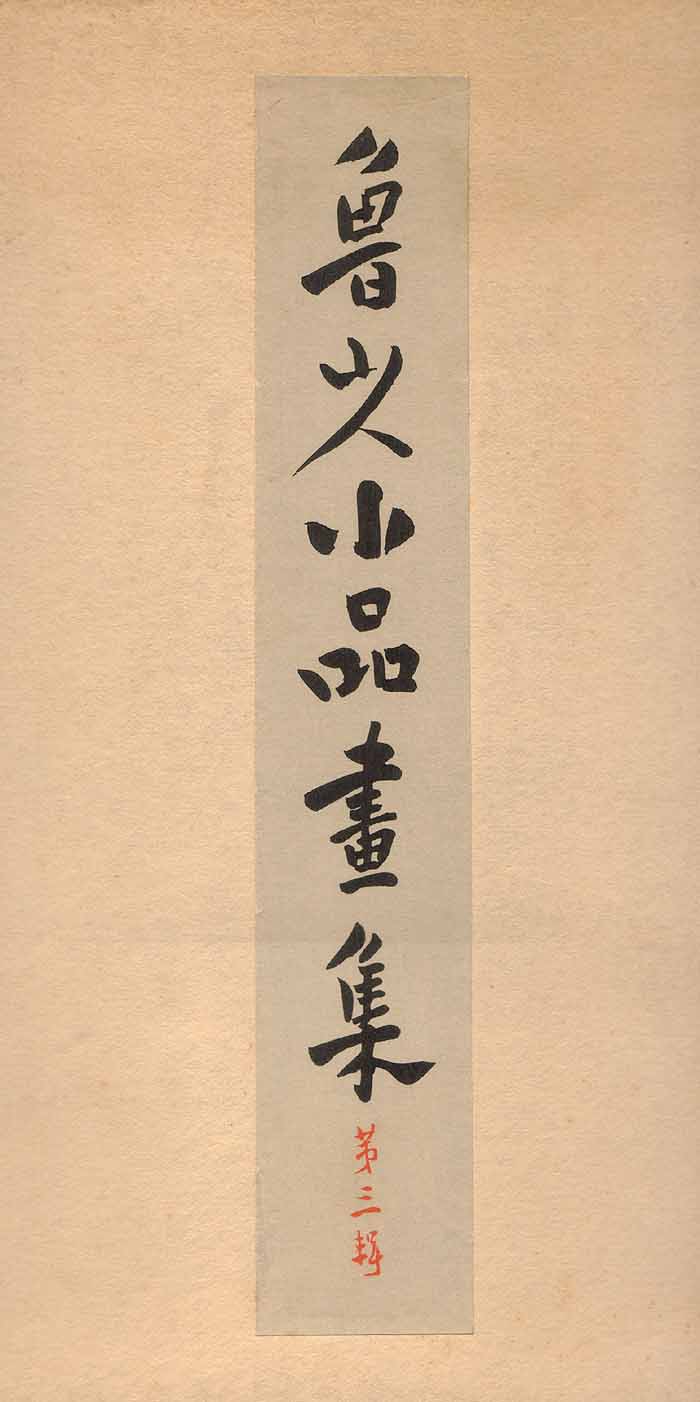 魯山人小品畫集
第三輯